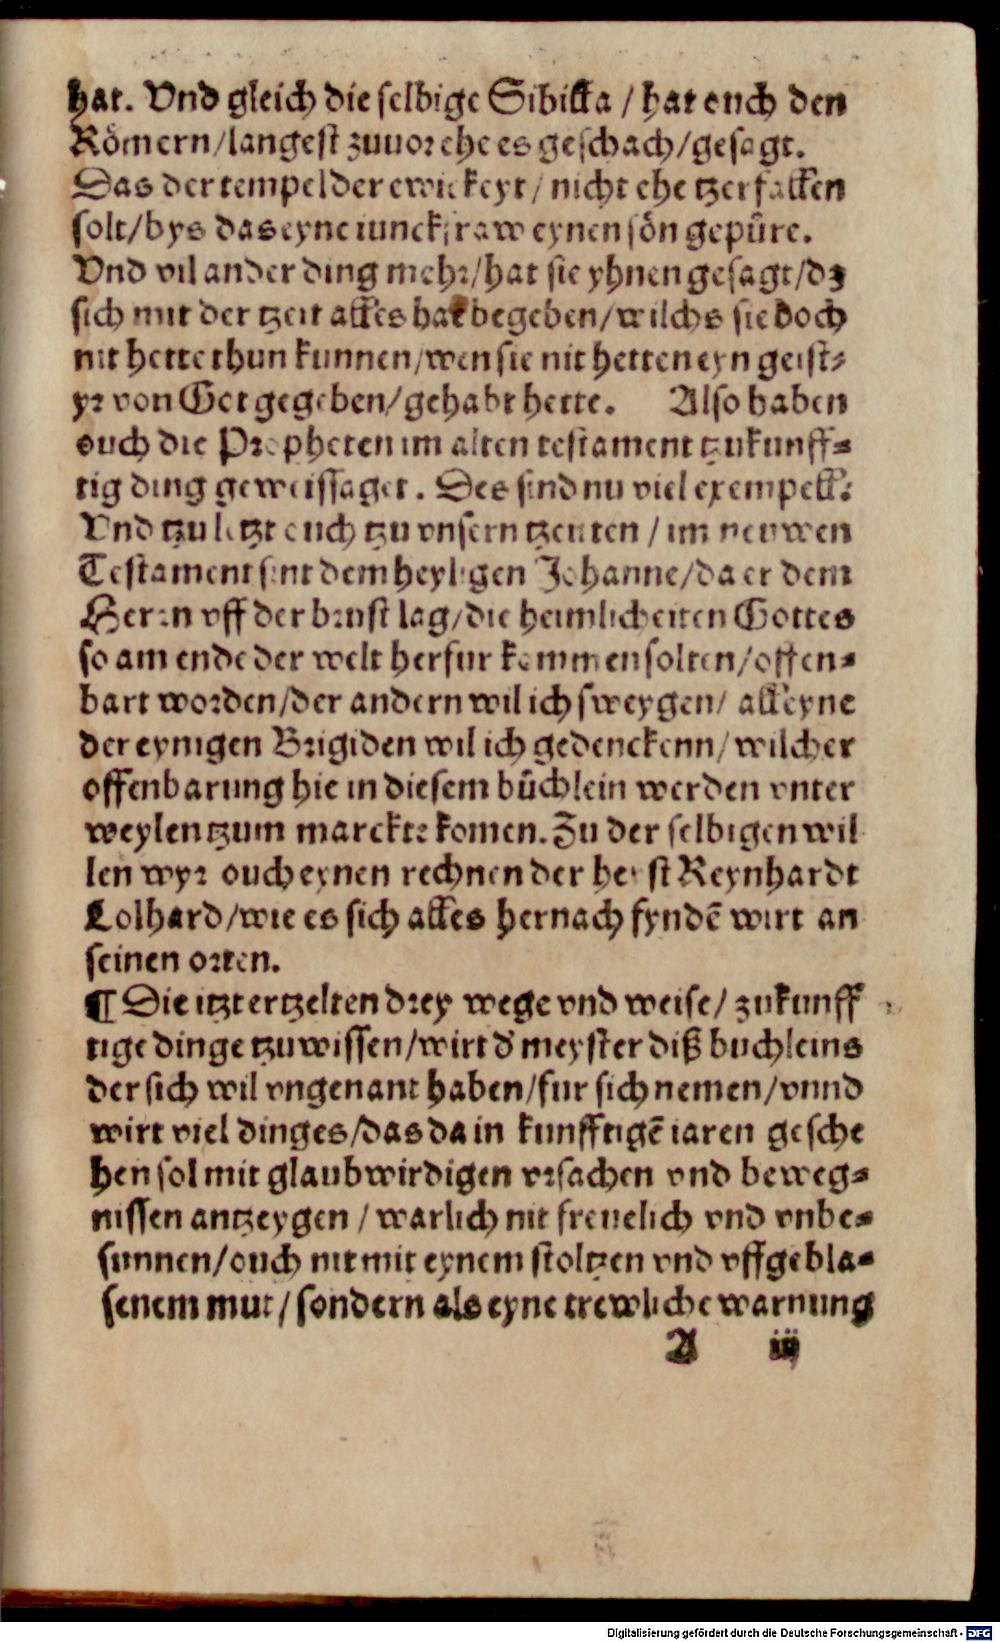 hat. Vnd gleich die selbige Sibilla / hat ouch den
Römern/langest zuuor ehe es geschach/gesagt.
Das der tempel der ewickeyt / nicht ehe tzerfallen
solt/bys das eyne iunckfraw eynen sön gepüre.
Vnd vil ander ding mehr/hat sie yhnen gesagt/dz
sich mit der tzeit alles hat begeben/wilchs sie doch
nit hette thun kunnen/wen sie nit hetten eyn geist⸗
yr von Got gegeben/gehabt hette. Also haben
ouch die Propheten im alten testament tzukunff⸗
tig ding geweissaget. Des sind nu viel exempell:
Vnd tzu letzt ouch tzu vnsern tzeiten / im neuwen
Testament sint dem heyligen Johanne/da er dem
Heren vff der brust lag/die heimlicheiten Gottes
so am ende der welt herfur kommen solten/offen⸗
bart worden/der andern wil ich sweygen/ alleyne
der eynigen Brigiden wil ich gedenckenn/ wilcher
offenbarung hie in diesem büchlein werden vnter
weylen tzum marckte komen. Zu der selbigen wil
len wyr ouch eynen rechnen der heyst Reynhardt
Lolhard/wie es sich alles hernach fyndē wirt an
seinen orten.
¶ Die itzt ertzelten drey wege vnd weise/ zukunff
tige dinge tzu wissen/wirt d' meyster diß buchleins
der sich wil vngenant haben/fur sich nemen/vnnd
wirt viel dinges/das da in kunfftigē iaren gesche
hen sol mit glaubwirdigen vrsachen vnd beweg⸗
nissen antzeygen / warlich nit freuelich vnd vnbe⸗
sunnen/ouch nit mit eynem stoltzen vnd vffgebla⸗
senem mut/ sondern als eyne trewliche warnung
A iij
Digitalisierung gefördert durch die Deutsche Forschungsgemeinschaft - DFG